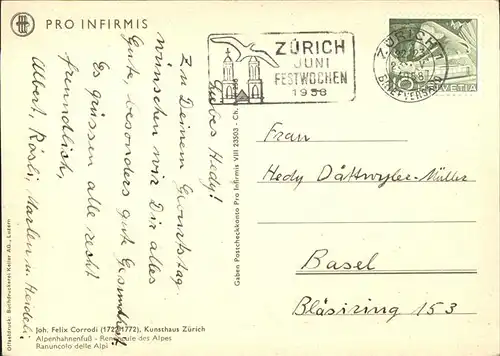 PRO INFIRMIS
Liebes Hedy!
Zu Deinem Geburtstag
wünschen wir Dir alles
Gute, besonders gute Gesundheit!
Es grüssen alle recht
freundlich,
Albert, Rösli, Marlen u. Heideli.
ZÜRICH
JUNI
FESTWOCHEN
1958
ZÜRICH
BRIEFVERSAND
10
HELVETIA
Frau
Hedy Dättwyler-Müller
Basel
Bläsiring 153
Gaben Postscheckkonto Pro Infirmis VIII 23503 - Ch.
Offsetdruck: Buchdruckerei Keller AG., Luzern
Joh. Felix Corrodi (1722-1772), Kunsthaus Zürich
Alpenhahnenfuß - Renoncule des Alpes
Ranuncolo delle Alpi